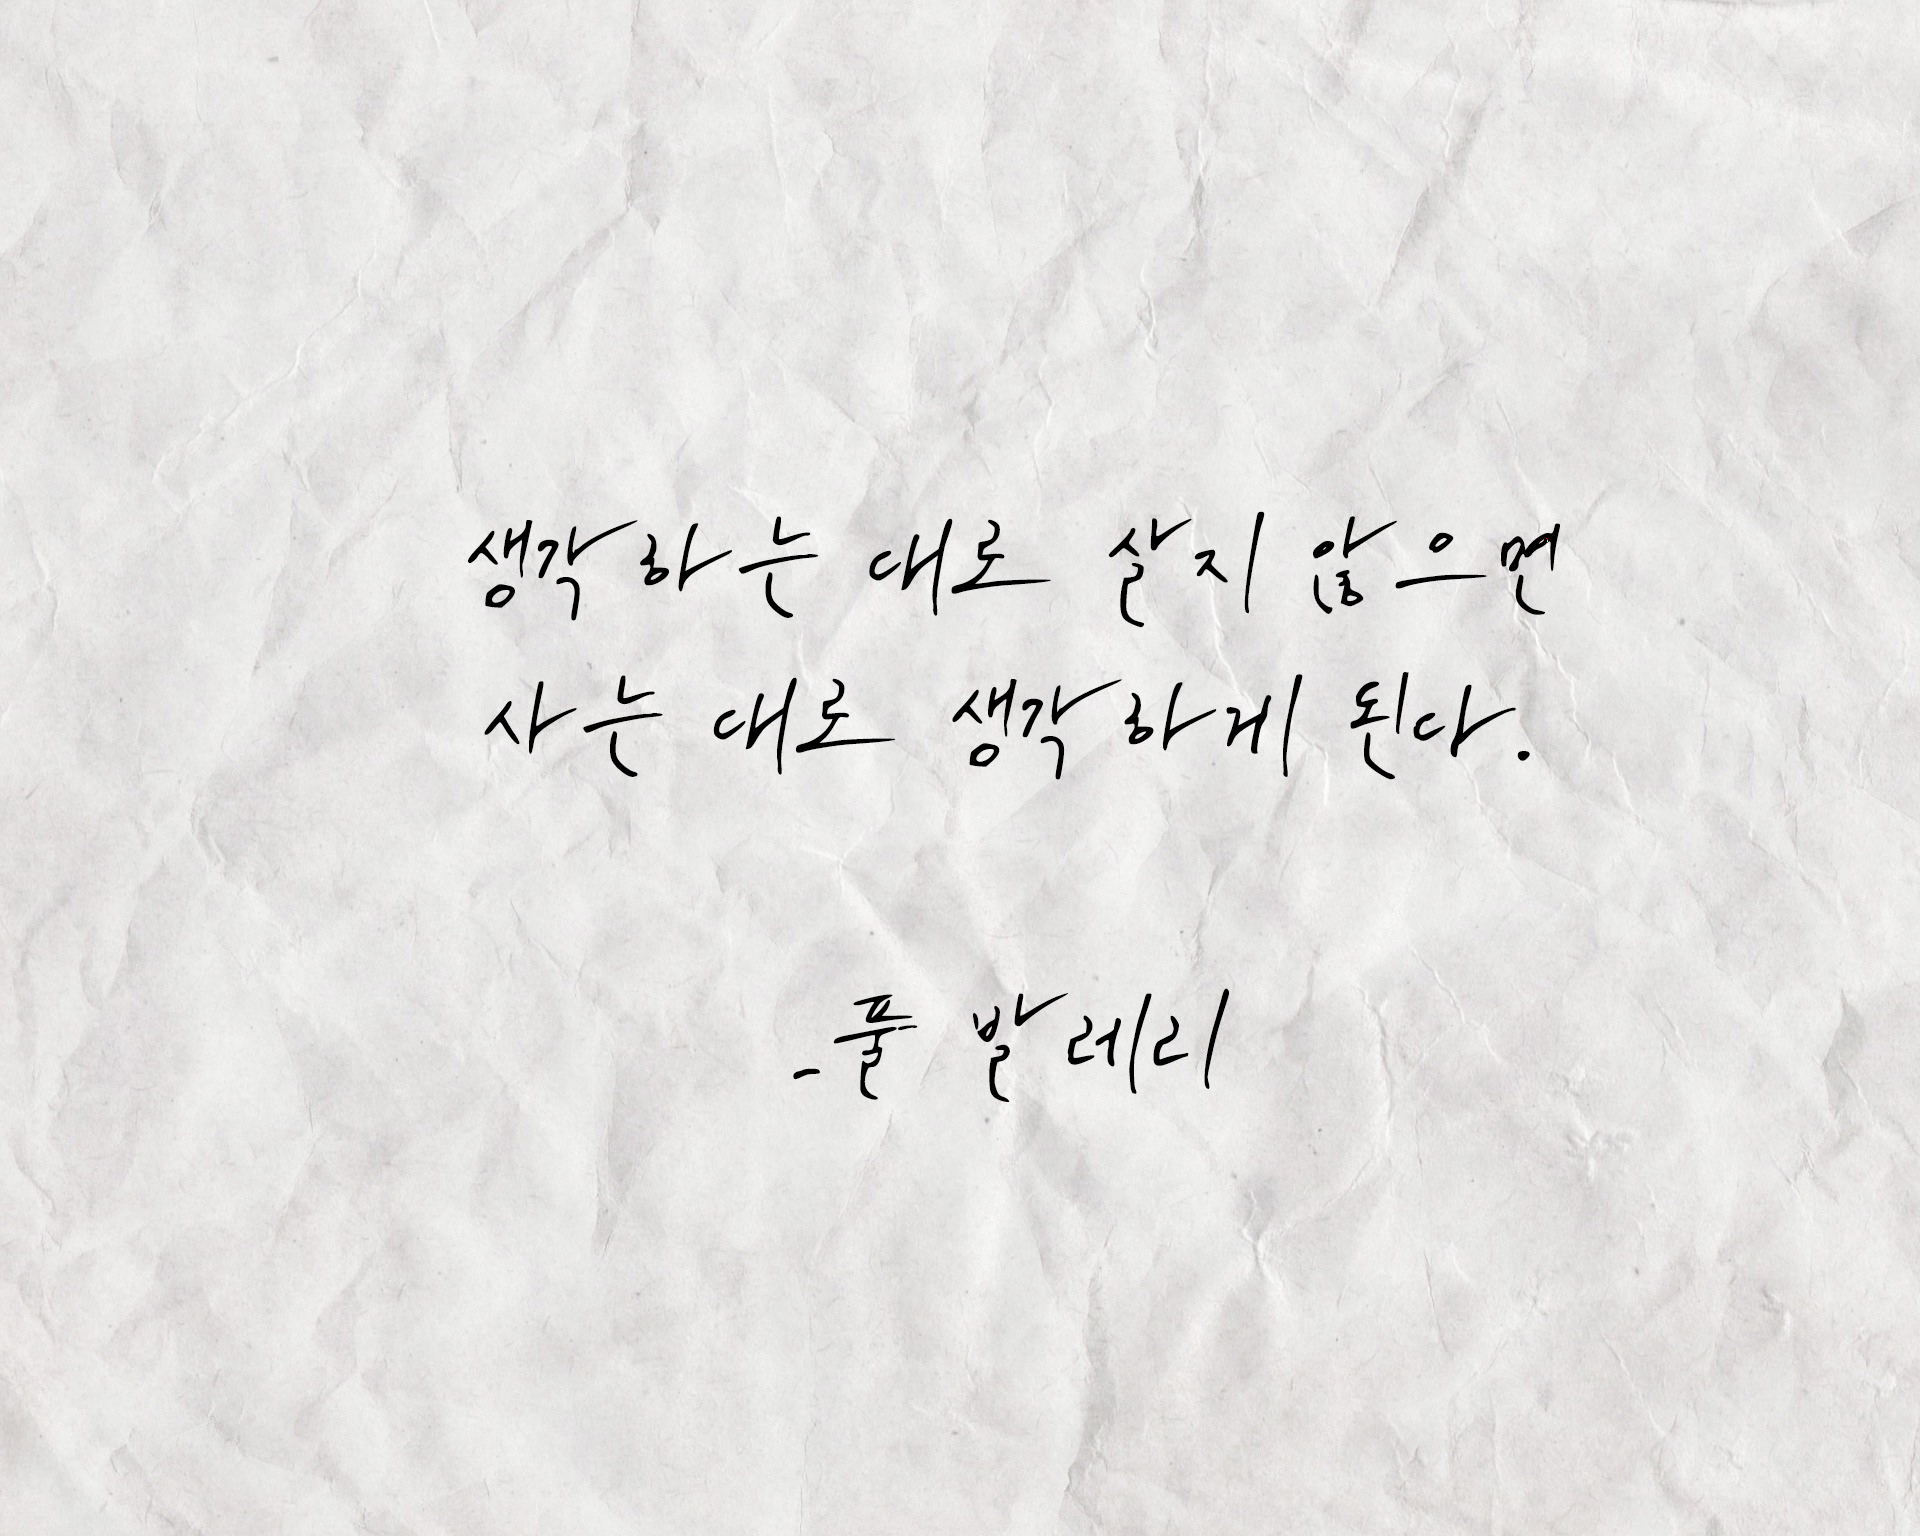 생각하는 대로 살지 않으면
사는 대로 생각하게 된다.
-풀 발레리